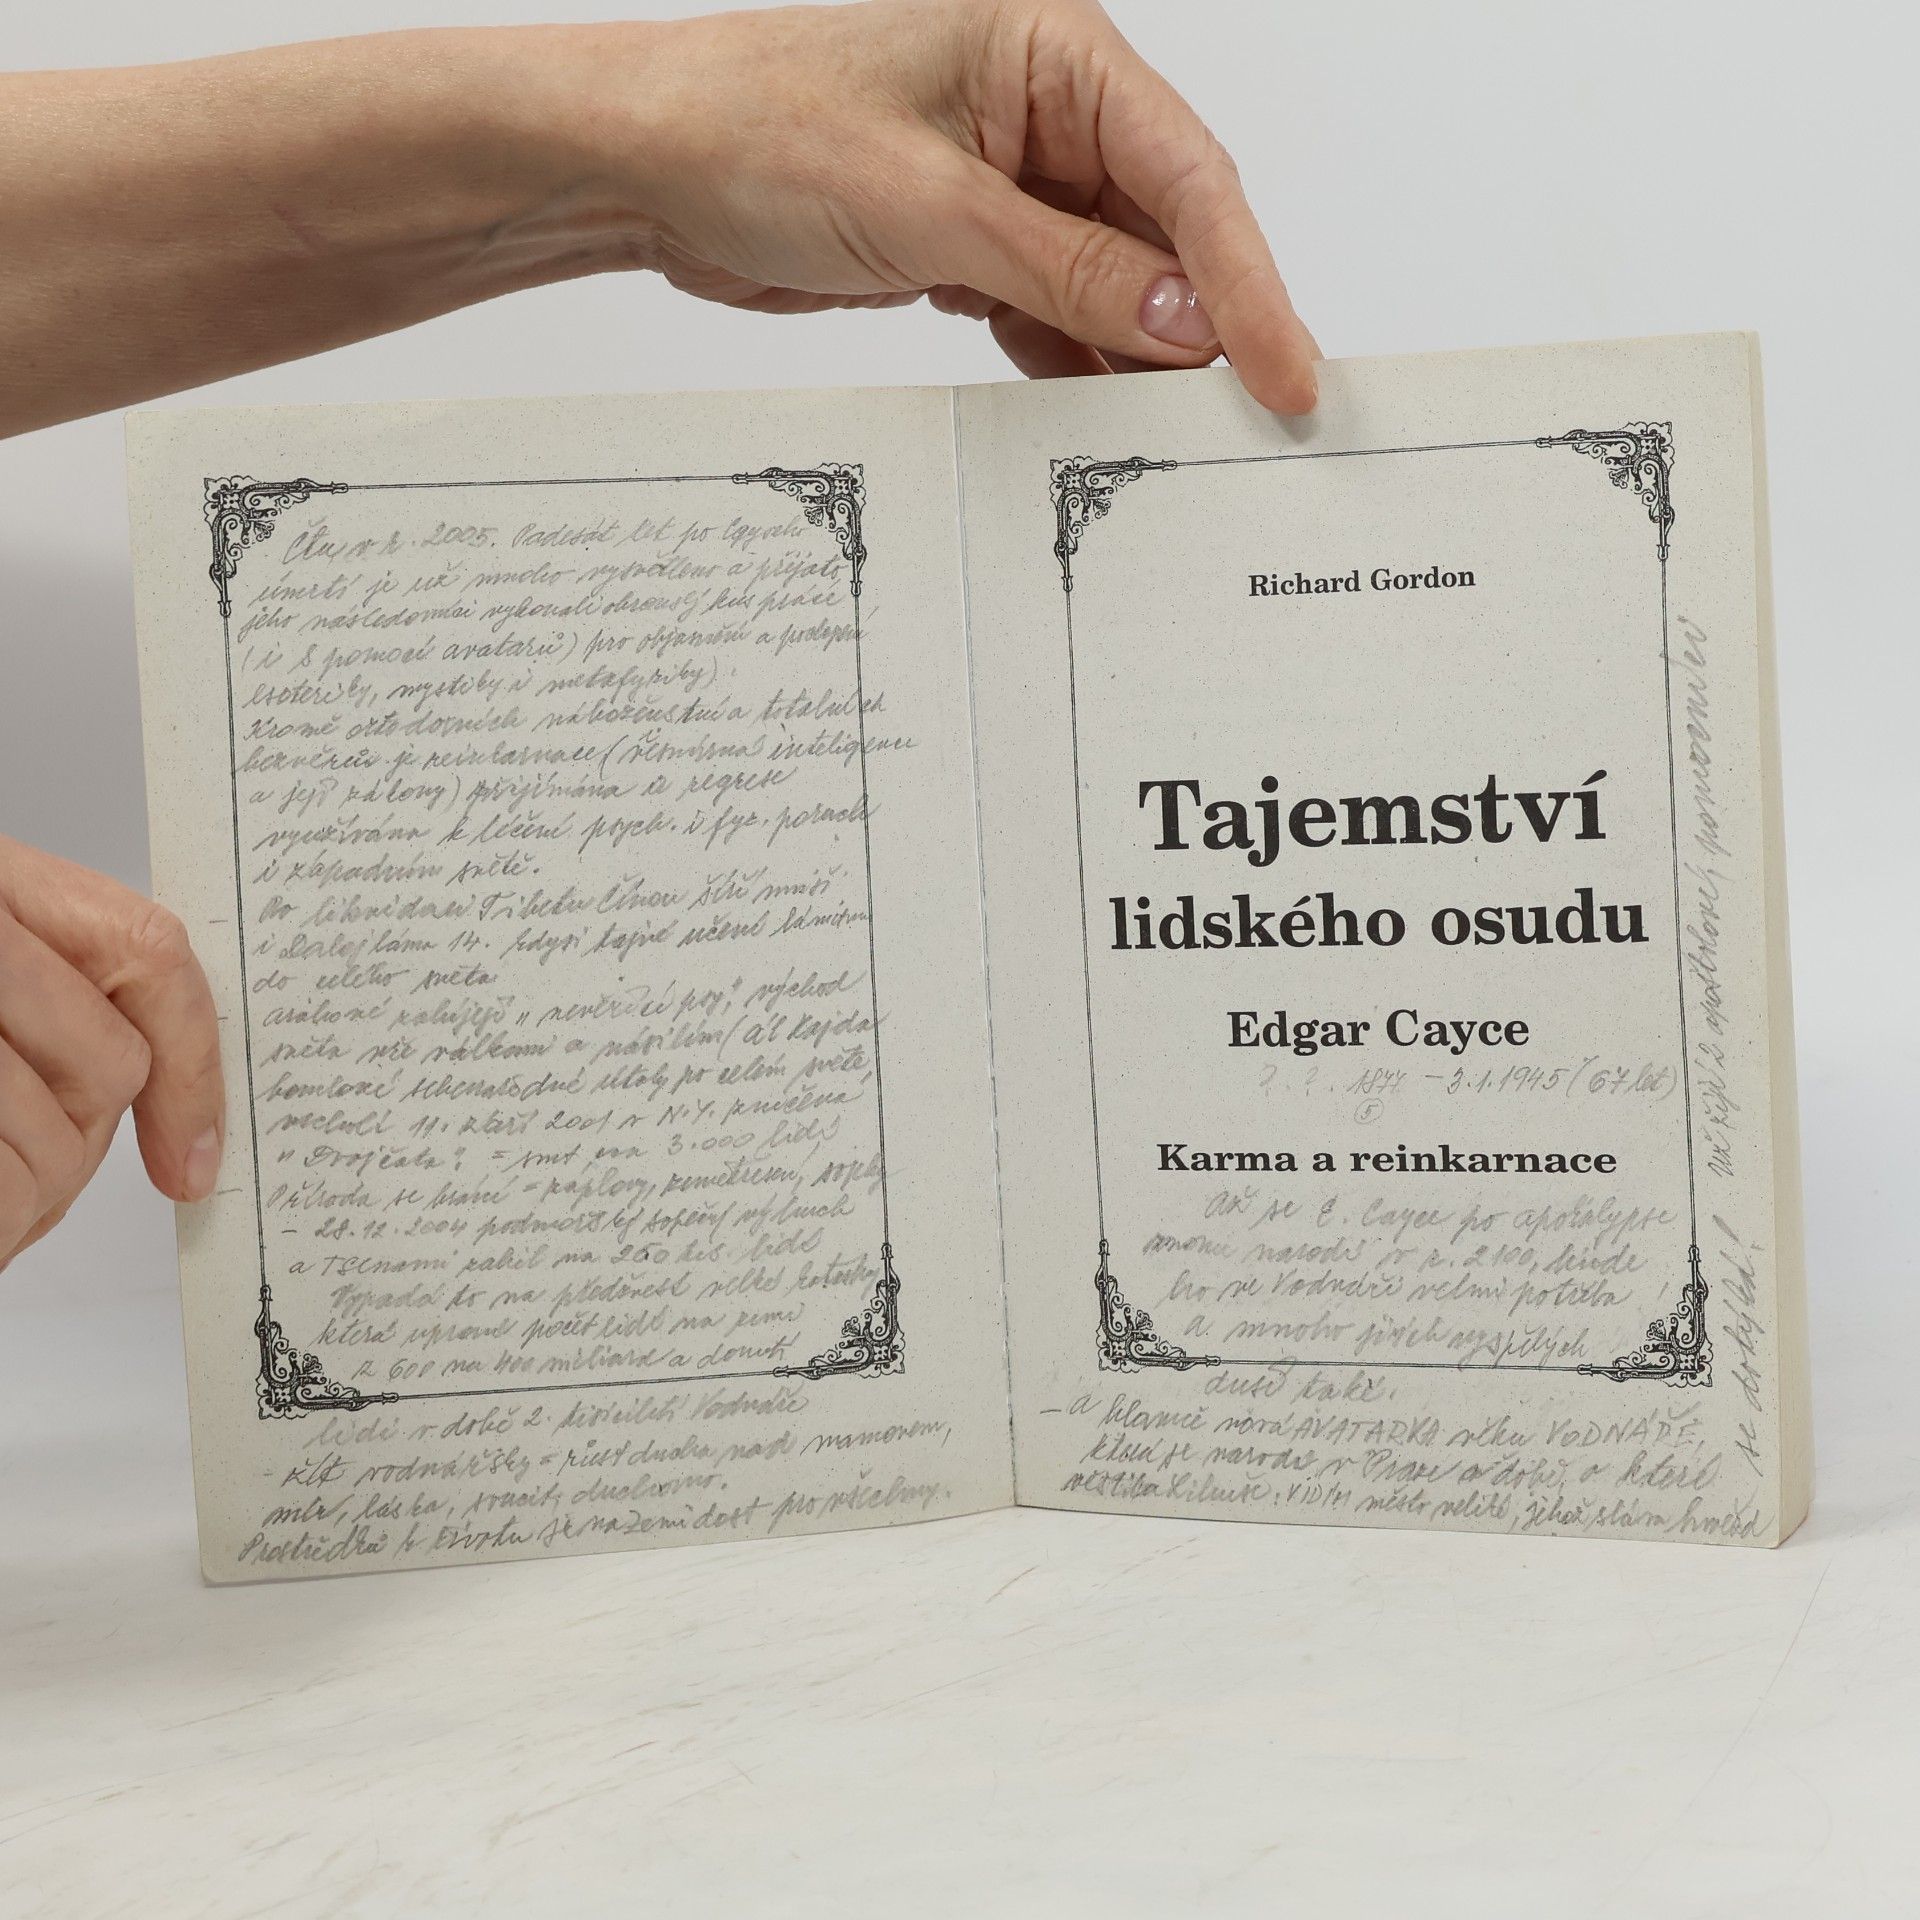 Čtu v r. 2005. Padesát let po Cayceho
úmrtí je už mnoho vysvětleno a přijato,
jeho následovníci vykonali obrovský kus práce
(i s pomocí avatarů) pro objasnění a
esoteriky, mystiky i metafyziky).
Kromě ortodoxních náboženství a totálních
bezvěrců je reinkarnace (vesmírná inteligence
a její zákony) přijímána a regrese
využívána k léčení psych. i fyz. poruch
i v západním světě.
Po likvidaci Tibetu Čínou šíří mniši
i Dalajláma 14. kdysi tajné učení lámaismu
do celého světa
arabové zabíjejí "nevěřící psy", východ
světa vře válkami a násilím (Al Kajda
bombové sebevražedné útoky po celém světě,
vrcholí 11. září 2001 v N.Y. zničena
"Dvojčata". = smrt cca 3.000 lidí
Příroda se brání = záplavy, zemětřesení, sopky
- 28.12.2004 podmořský sopečný výbuch
a TSUnami zabil na 250 tis. lidí
Vypadá to na předzvěst velké katastrofy
která upraví počet lidí na zemi
z 600 na 400 miliard a donutí
lidi v době 2. tisíciletí Vodnáře
- žít vodnářsky = růst ducha nad mamonem,
mír, láska, soucit, duchovno.
Prostředků k životu je na Zemi dost pro všechny.
Richard Gordon
Tajemství
lidského osudu
Edgar Cayce
? . ? . 1877 - 3.1.1945 (67 let)
5
Karma a reinkarnace
Až se E. Cayce po apokalypse
znovu narodí v r. 2100, bude
ho ve Vodnáři velmi potřeba
a mnoho jiných vyspělých
duší také.
- a hlavně nová AVATARKA věku VODNÁŘE,
která se narodí v Praze a době, o které
věštila Libuše: VIDÍM město veliké, jehož sláva hvězd
se dotýkat!
už žijí 2 apoštolové,